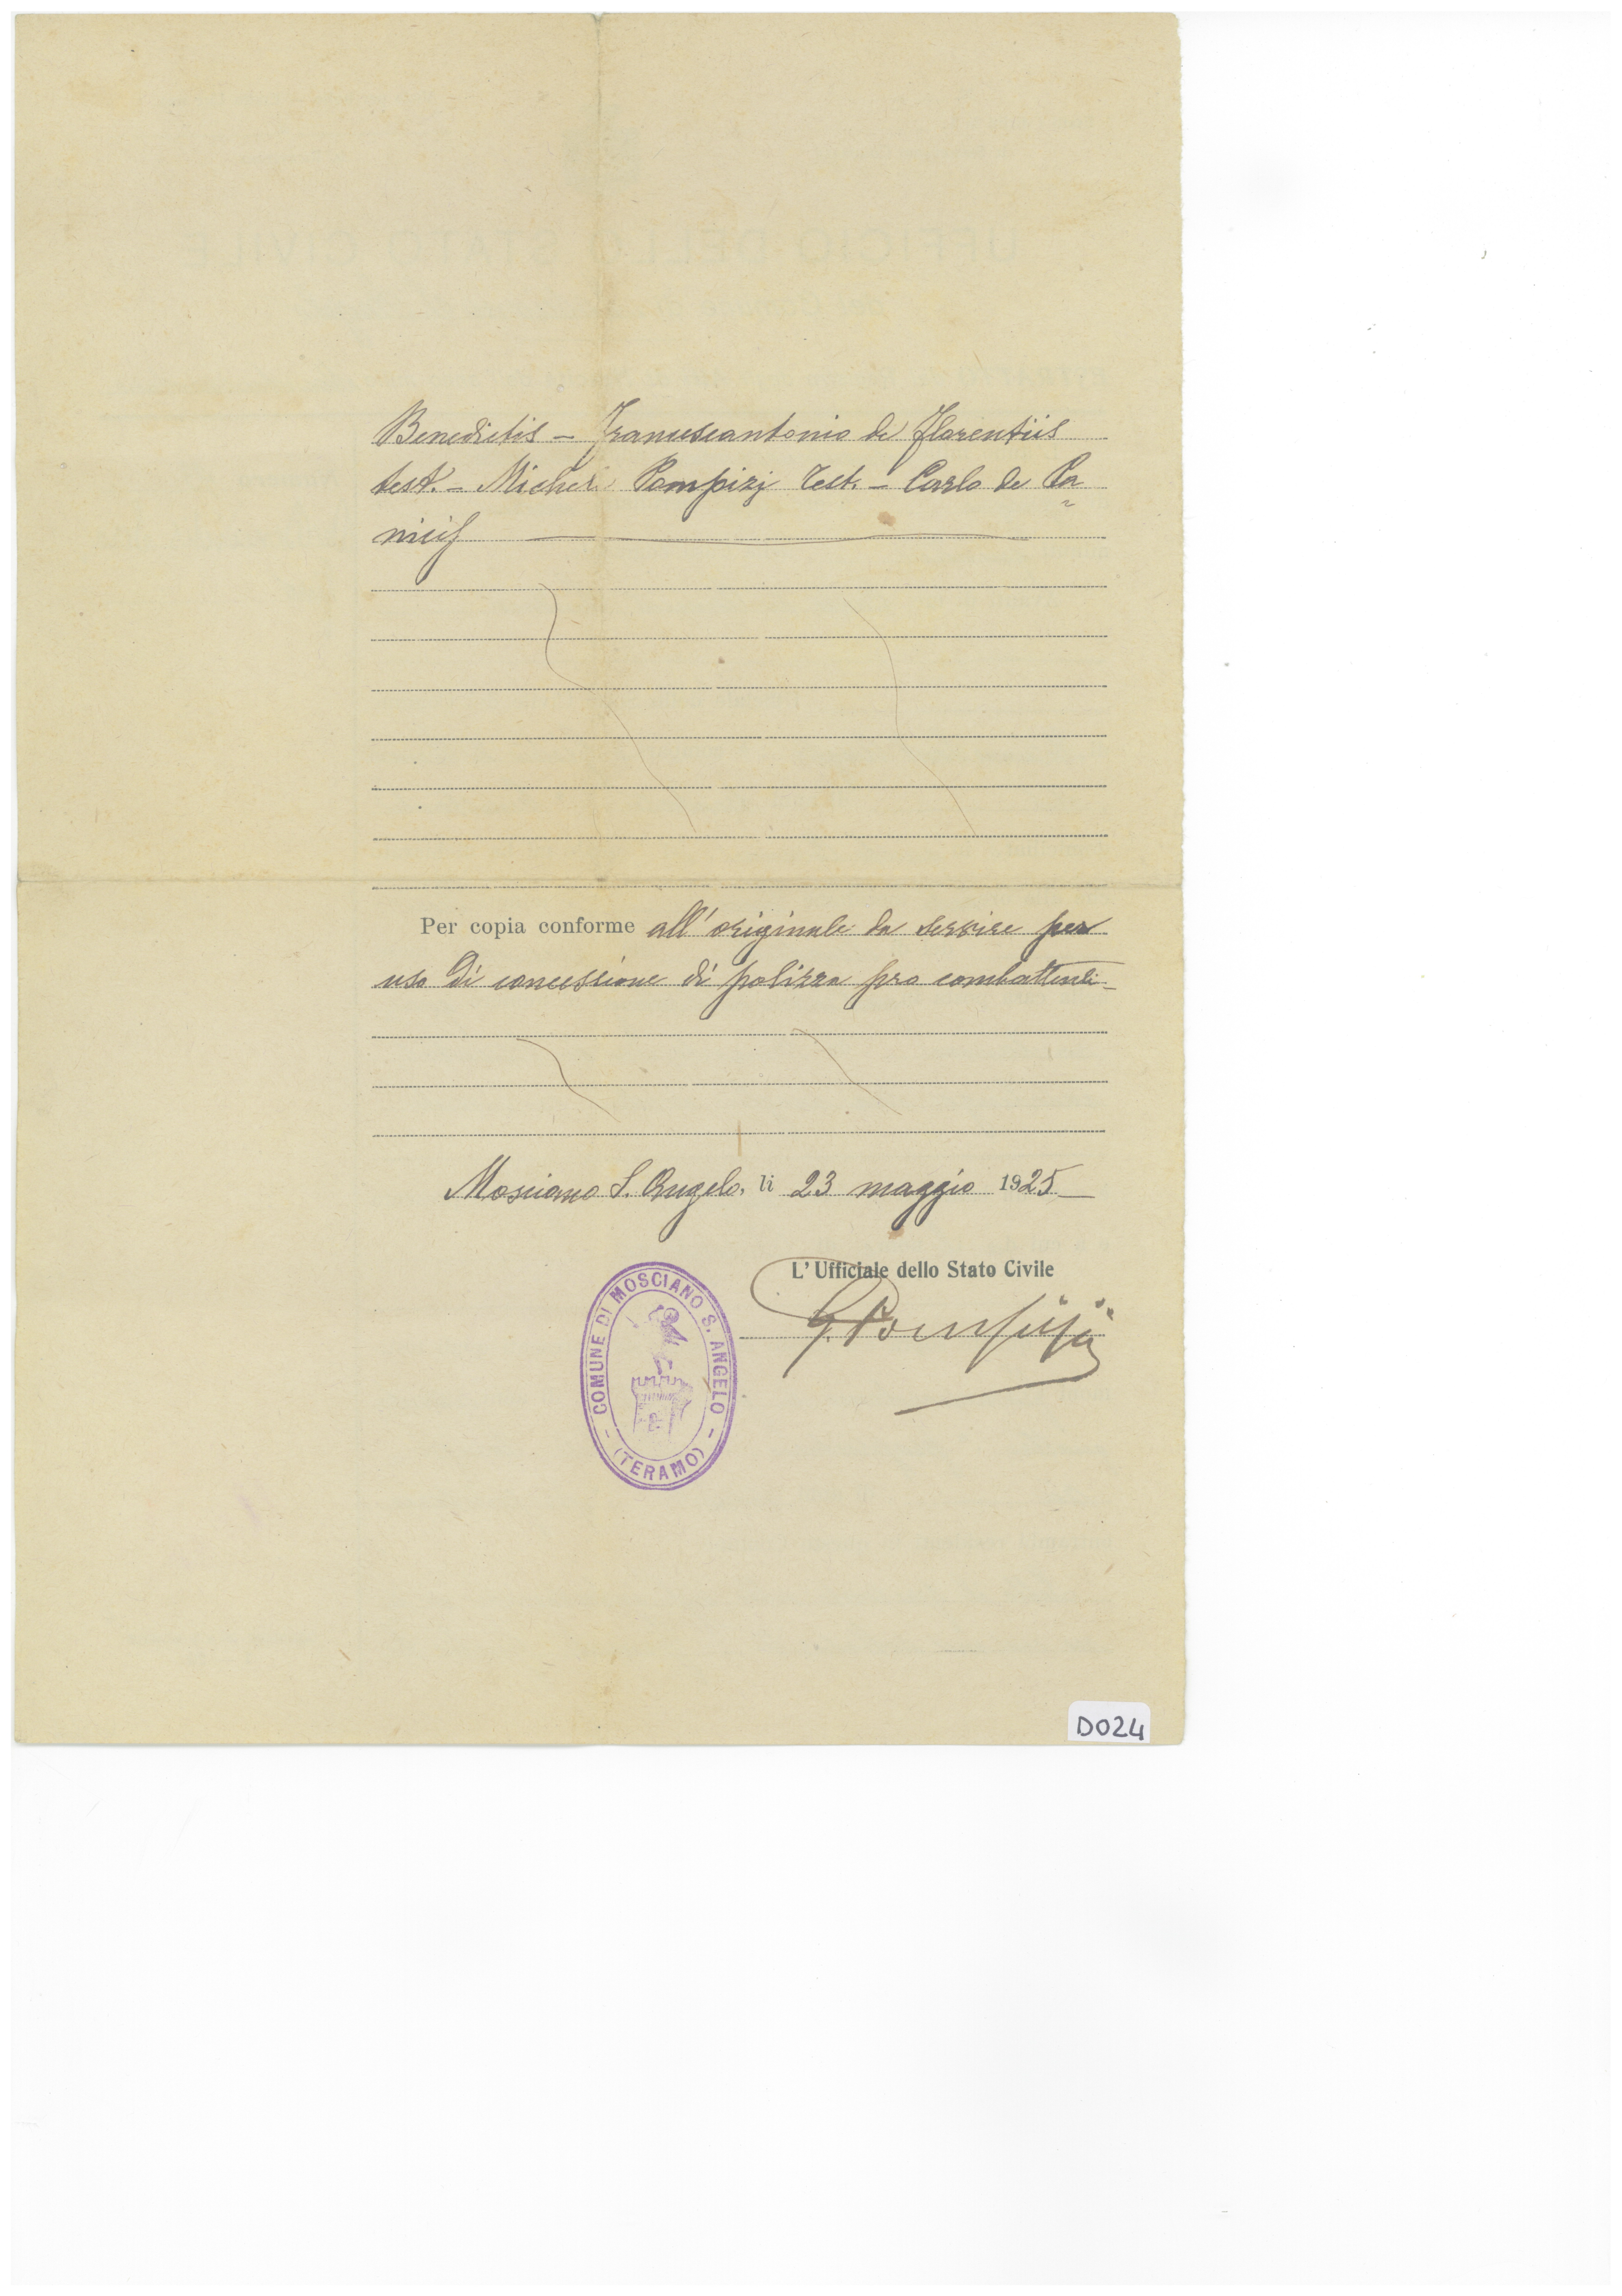 Benedictis - Francescantonio de Florentiis
test. - Michel Pompizj Test. - Carlo de Pa
nicis
Per copia conforme all'originale da servire per
uso di concessione di polizza pro combattenti -
Mosciano S. Angelo, li 23 maggio 1925
L'Ufficiale dello Stato Civile
G. Pompizj
COMUNE DI MOSCIANO S. ANGELO
(TERAMO)
D024